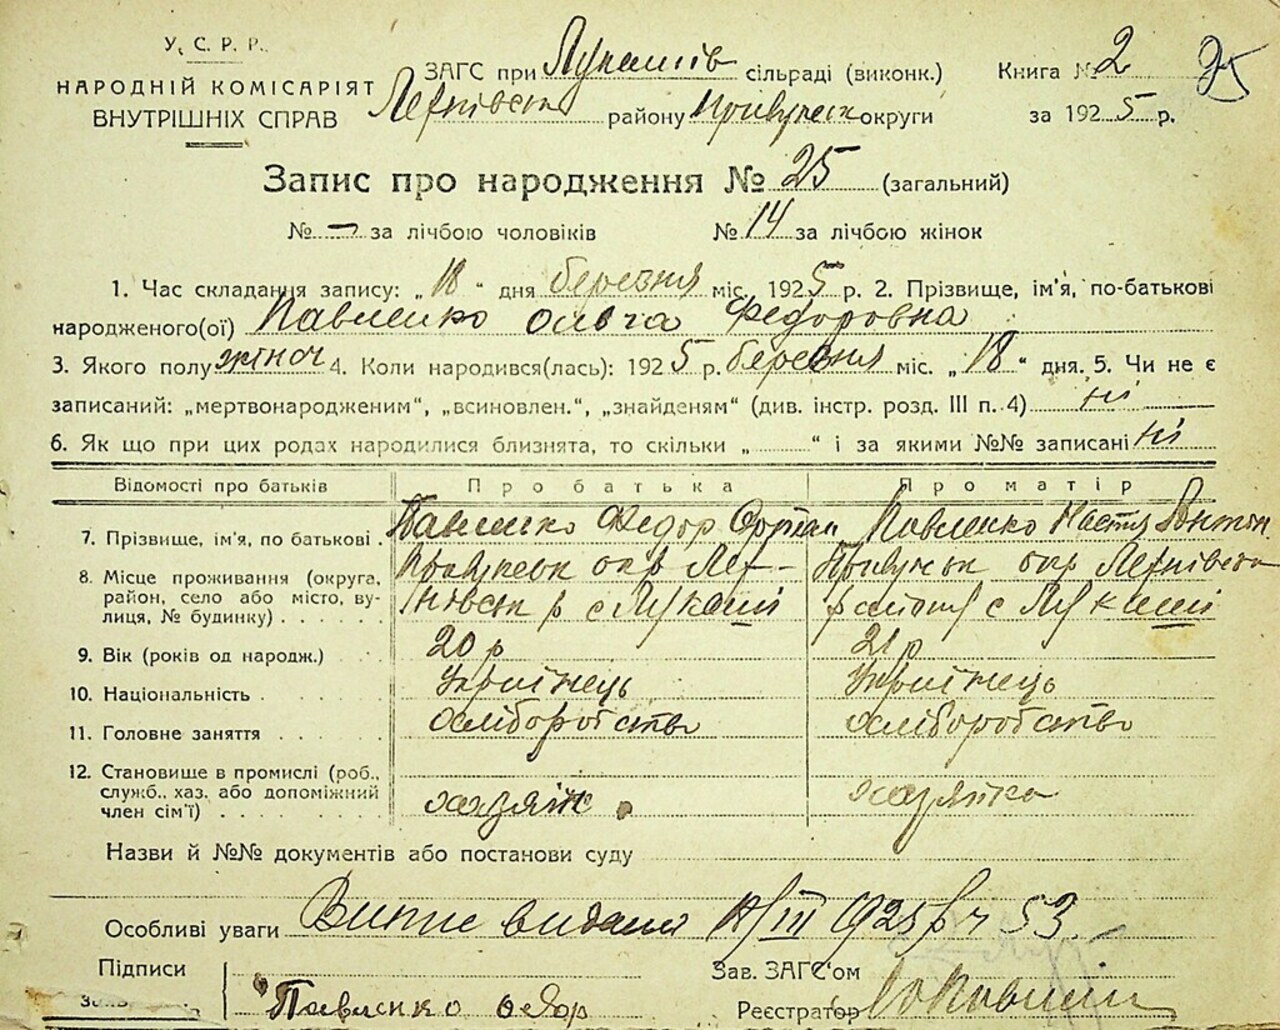 У. С. Р. Р.
НАРОДНІЙ КОМІСАРІЯТ
ВНУТРІШНІХ СПРАВ
ЗАГС при Лукашів сільраді (виконк.)
району Прилуцьк округи
Книга № 2 25
за 1925 р.
Запис про народження № 25 (загальний)
№ – за лічбою чоловіків № 14 за лічбою жінок
1. Час складання запису: „18“ дня березня міс. 1925 р. 2. Прізвище, ім'я, по-батькові
народженого(ої) Павленко Ольга Федоровна
3. Якого полу жіноч 4. Коли народився(лась): 1925 р. березня міс. „18“ дня. 5. Чи не є
записаний: „мертвонародженим“, „всиновлен.“, „знайденям“ (див. інстр. розд. III п. 4) ні
6. Як що при цих родах народилися близнята, то скільки „ “ і за якими №№ записані ні
Відомості про батьків Про батька Про матір
7. Прізвище, ім'я, по батькові . Павленко Федор Павленко Настя Антон.
8. Місце проживання (округа, Прилуцьк окр Прилуцьк окр
район, село або місто, ву- р с Лукаші району с Лукаші
лиця, № будинку) . . . . . .
9. Вік (років од народж.) . . . 20 р 21 р
10. Національність . . . . . Українець Українець
11. Головне заняття . . . . хліборобство хліборобство
12. Становище в промислі (роб.,
служб., хаз. або допоміжний хазяін хазяйка
член сім'ї) . . . . . . . .
Назви й №№ документів або постанови суду
Особливі уваги Випис видана /III 1925 р ч 53.
Підписи Зав. ЗАГС'ом
Павленко Федор Реєстратор